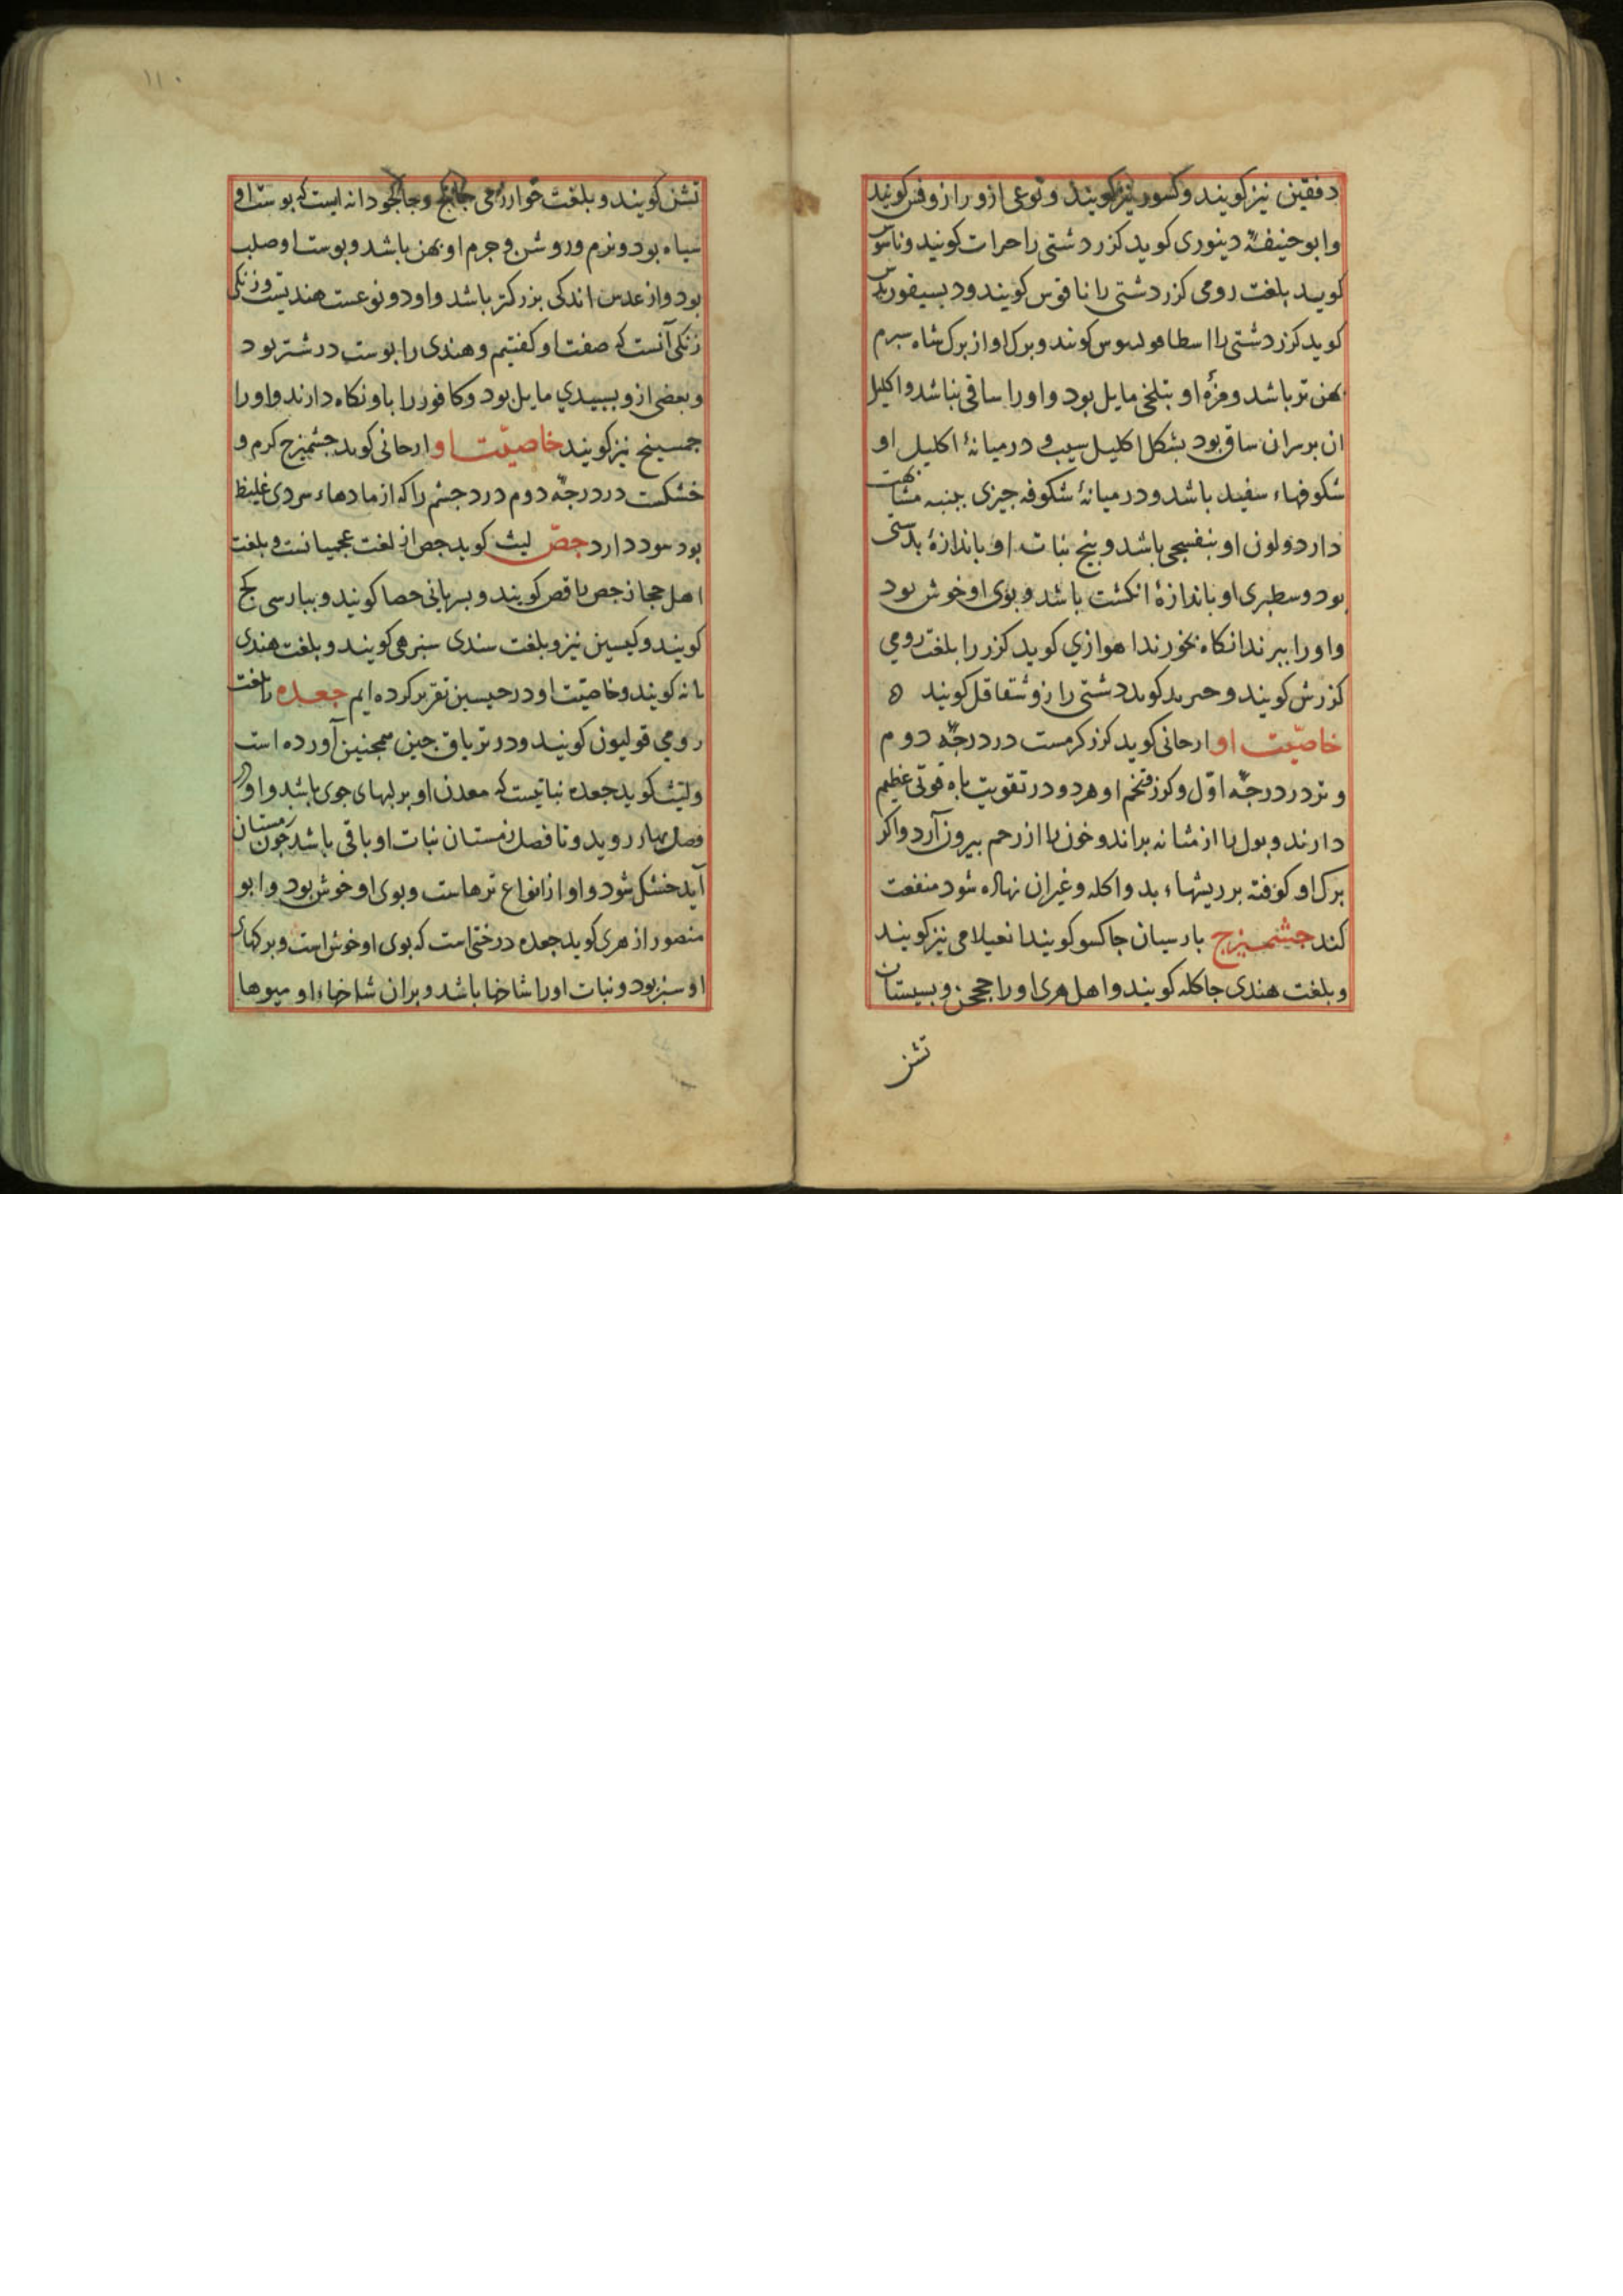 دفقین نیز کویند و کسور نیز کویند و نوعی ازو را زوفس کویند
و ابوحنیفه دینوری کوید کزر دشتی را حرات کویند و ناسوس
کوید بلغت رومی کزر دشتی را ناقوس کویند و دیسیقوریدس
کوید کزر دشتی را اسطا کویند و برک او از برک شاه سبرم
بهن تر باشد و مزهٔ او بتلخی مایل بود و او را ساقی بباشد و اکلیل
ان بر سران ساق بود بشکل اکلیل سیب و درمیانهٔ اکلیل او
شکوفهاء سفید باشد و درمیانهٔ شکوفه جیزی ببنبه مشابهت
دارد و لون او بنفسجی باشد و بیخ نبات او باندازهٔ بدستی
بود و سطبری او باندازهٔ انکشت باشد و بوی او خوش بود
و او را ببرند انکاه بخورند اهوازی کوید کزر را بلغت رومی
کزرش کویند و کوید دشتی را زو شقاقل کویند ه
خاصیّت او ارجانی کوید کزر کرمست در درجهٔ دوم
و تر در درجهٔ اوّل و کزر و تخم او هر دو در تقویت باه قوتی عظیم
دارند و بول را از مثانه براند و خون را از رحم بیرون آرد و اکر
برک او کوفته بر ریشهاء بد و اکله و غیر ان نهاده شود منفعت
کند جشمیزج بارسیان جاکسو کویند انعیلامی نیز کویند
و بلغت هندی جاکله کویند و اهل هری او را و بسیستان
تشن
۱۱۰
تشن کویند و بلغت خوارزمی و دانه ایست که بوست او
سیاه بود و نرم و روشن و جرم او بهن باشد و بوست او صلب
بود و از عدس اندکی بزرکتر باشد و او دو نوعست هندیست و زنکی
زنکی آنست که صفت او کفتیم و هندی را بوست درشتر بود
و بعضی ازو بسبیدی مایل بود و کافور را باو نکاه دارند و او را
جمسیخ نیز کویند خاصیّت او ارجانی کوید جشمیزج کرم و
خشکست در درجهٔ دوم درد جشم را که از مادهاء سردی غلیظ
بود سود دارد جصّ لیث کوید جص از لغت عجمیانست و بلغت
اهل حجاز جص را قص کویند و بسریانی حصا کویند و ببارسی کج
کویند و کیسین نیز و بلغت سندی کویند و بلغت هندی
کویند و خاصیّت او در جبسین تقریر کرده ایم جعده را بلغت
رومی قولیون کویند و در تریاق جنین همجنین آورده است
و لیث کوید جعده نباتیست که معدن او بر لبهای جوی باشد و او در
فصل بهار روید و تا فصل زمستان نبات او باقی باشد جون زمستان
آید خشک شود و او از انواع ترهاست و بوی او خوش بود و ابو
منصور ازهری کوید جعده درختی است که بوی او خوش است و برکهای
او سبز بود و نبات او را شاخها باشد و بران شاخهاء او میوها